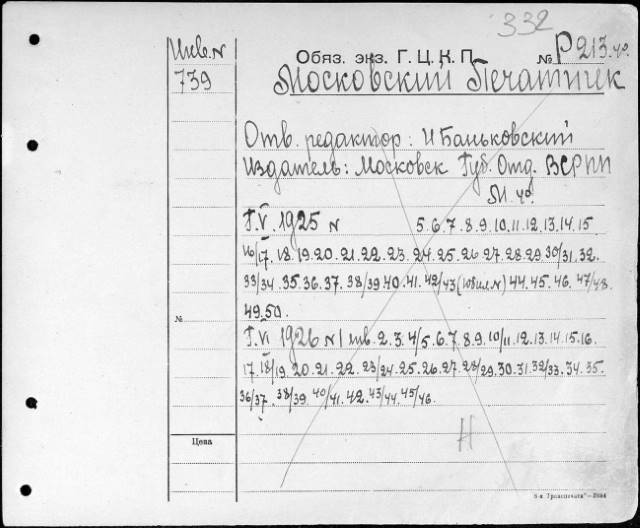 332
Инв. N
Обяз. экз. Г. Ц. К. П.
№ Р 213 4º.
739
Московский Печатник
Отв. редактор: И Баньковский
Издатель: Московск Губ. Отд. ВСРПП
М. 4º.
Г. V. 1925 N 5. 6. 7. 8. 9. 10. 11. 12. 13. 14. 15
16/17. 18. 19. 20. 21. 22. 23. 24. 25. 26 27. 28. 29. 30/31. 32.
33/34. 35. 36. 37. 38/39 40. 41. 42/43 (юбил. N) 44. 45. 46. 47/48.
№
49. 50.
Г. VI 1926 N 1 янв. 2. 3. 4/5. 6. 7. 8. 9. 10/11. 12. 13. 14. 15. 16.
17. 18/19. 20. 21. 22. 23/24. 25. 26. 27. 28/29. 30. 31. 32/33. 34. 35.
36/37. 38/39. 40/41. 42. 43/44. 45/46.
Н
Цена